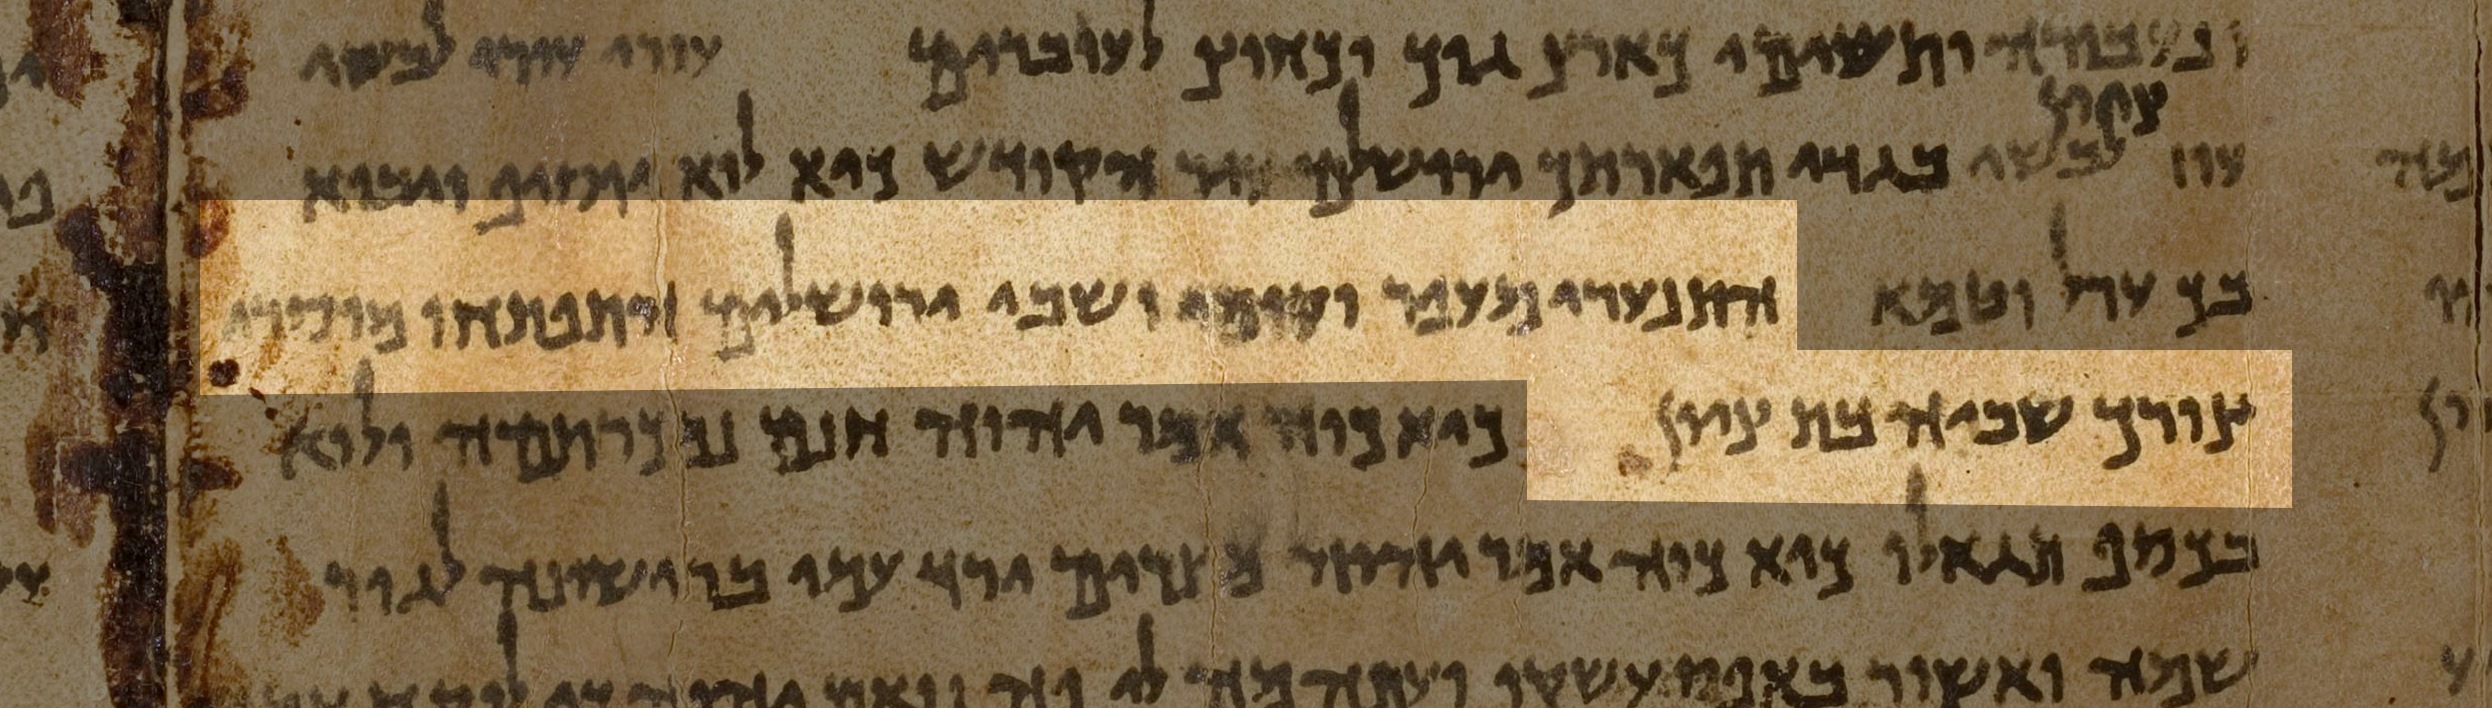 ונעבורה ותשימי כארץ גוך וכחוץ לעוברים עורי עורי לבשי
ציון
עוז לבשי בגדי תפארתך ירושלים עיר הקודש כיא לוא יוסיף ויבוא
בך ערל וטמא התנערי מעפר וקומי ושבי ירושלים התפתחו מוסרי
צורך שביה בת ציון כיא כוה אמר יהוה חנם נמכרתמה ולוא
בכסף תגאלו כיא כוה אמר יהוה מצרים ירד עמי ברישונה לגור
שמה ואשור באפס עשקו ועתה מה לי פה נואם יהוה